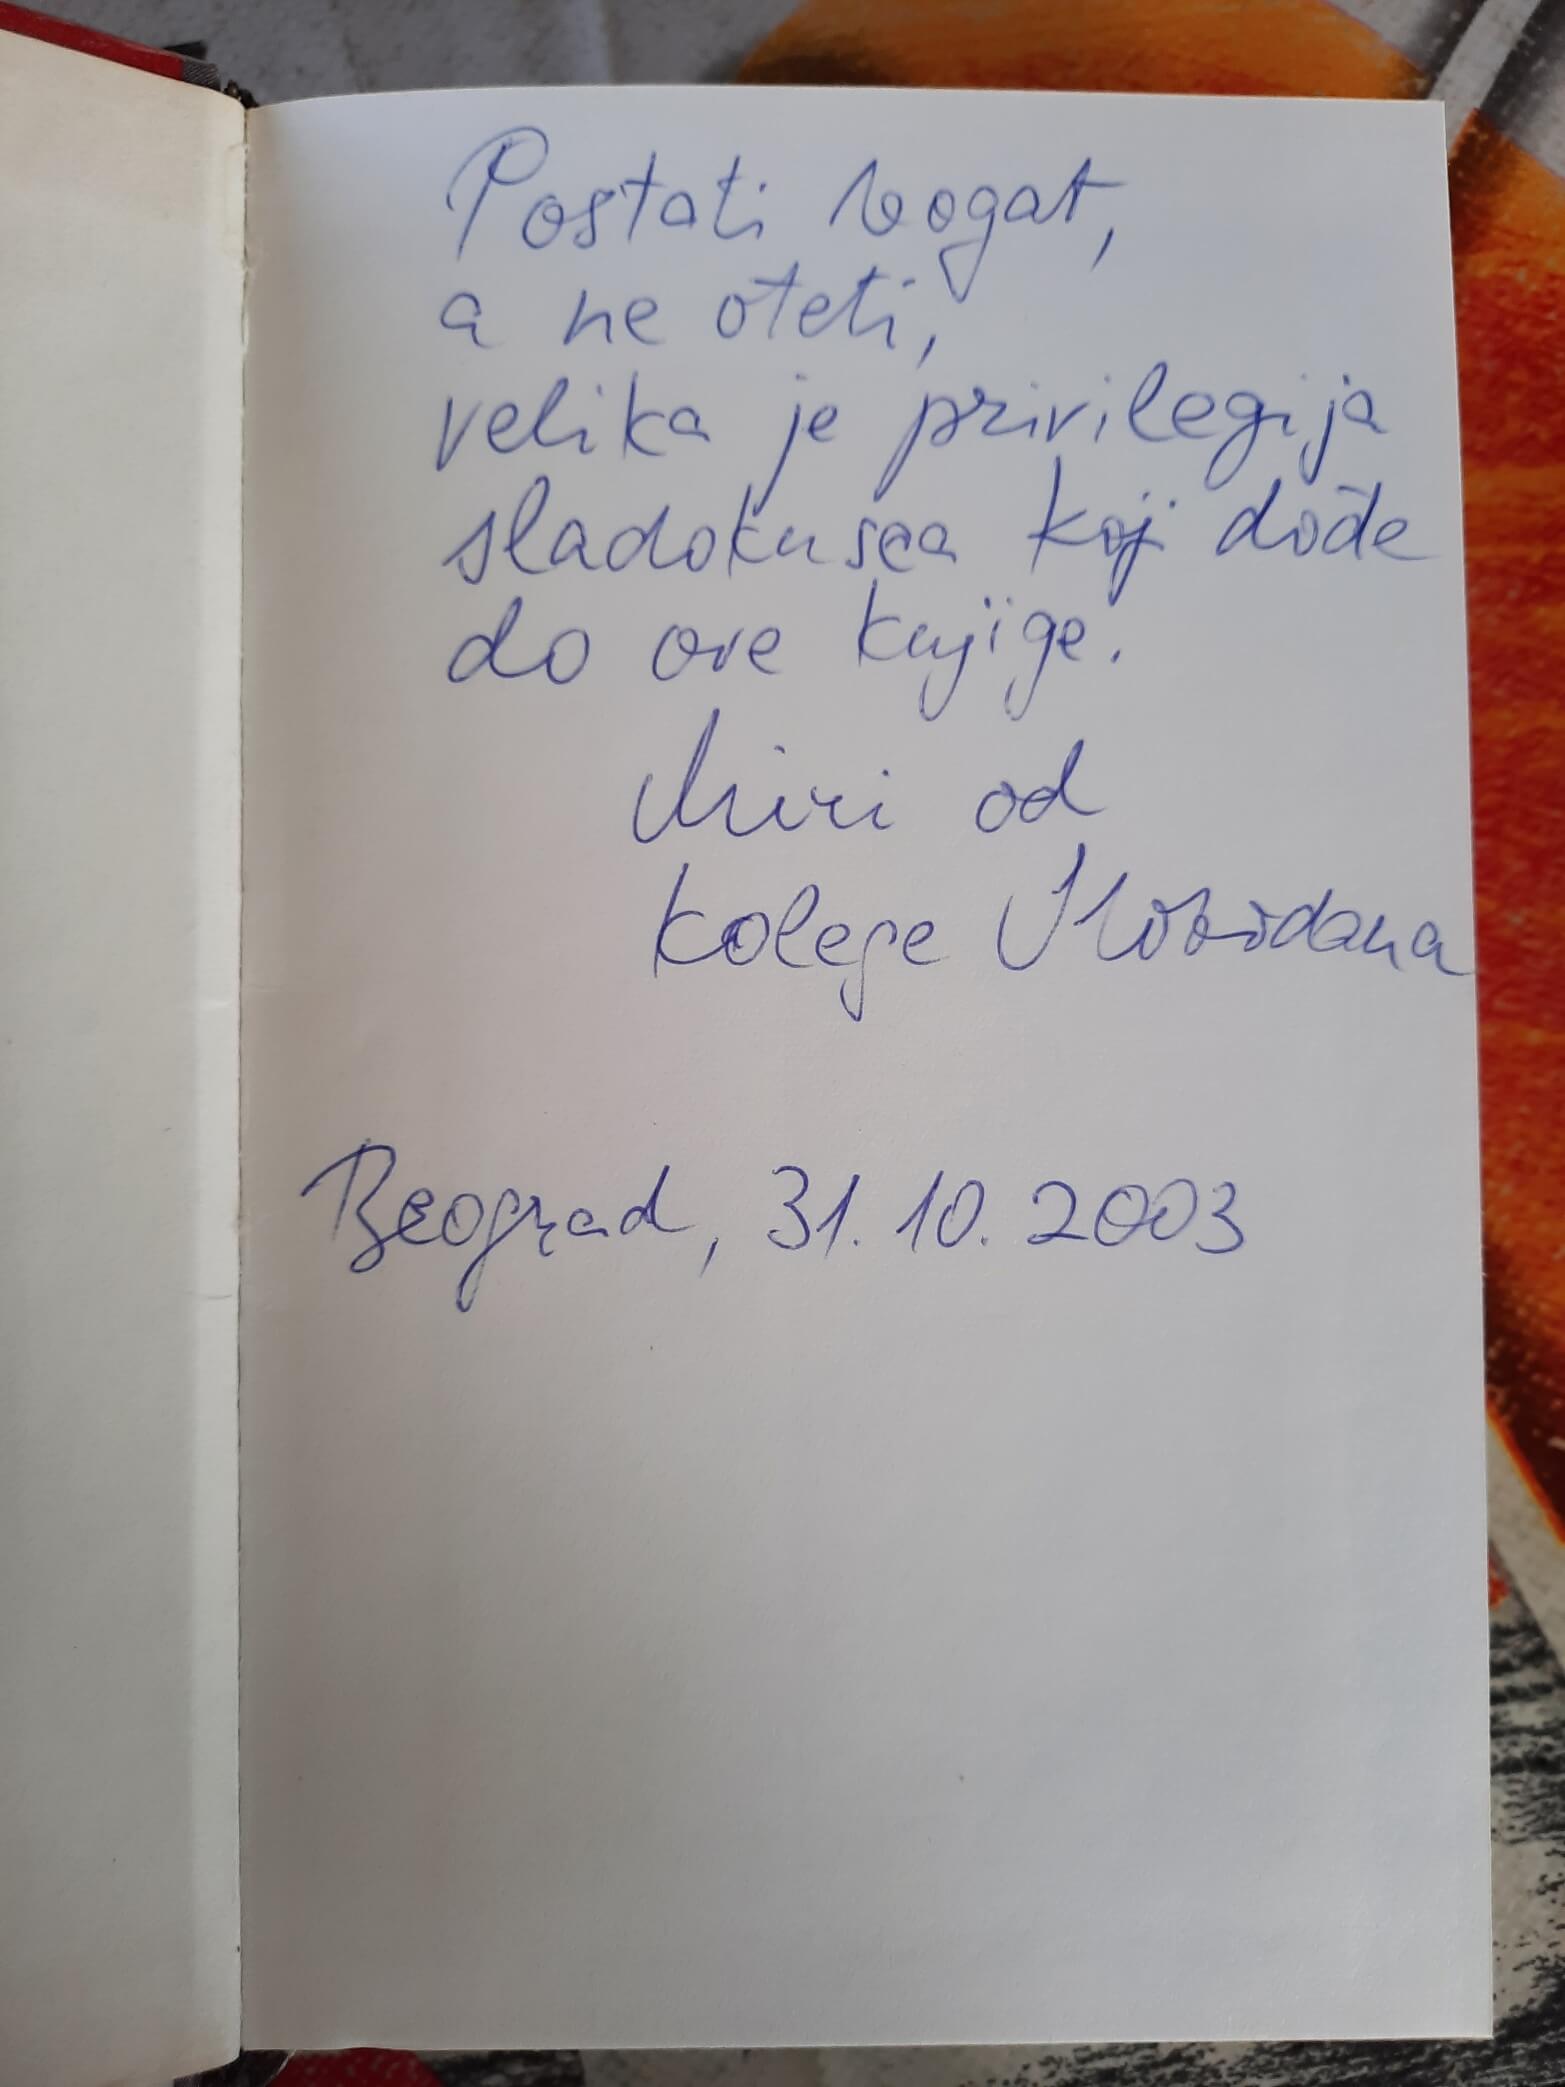 Postati bogat,
a ne oteti,
velika je privilegija
sladokusca koji dođe
do ove knjige.
Miri od
kolege Slobodana
Beograd, 31. 10. 2003